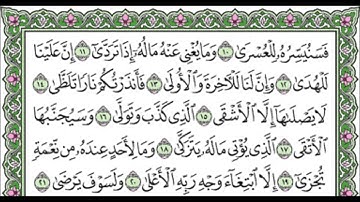 فَسَنُيَسِّرُهُۥ لِلْعُسْرَىٰ ١٠ وَمَا يُغْنِي عَنْهُ مَالُهُۥٓ إِذَا تَرَدَّىٰٓ ١١ إِنَّ عَلَيْنَا
لَلْهُدَىٰ ١٢ وَإِنَّ لَنَا لَلْـَٔاخِرَةَ وَٱلْأُولَىٰ ١٣ فَأَنذَرْتُكُمْ نَارًا تَلَظَّىٰ ١٤
لَا يَصْلَىٰهَآ إِلَّا ٱلْأَشْقَى ١٥ ٱلَّذِي كَذَّبَ وَتَوَلَّىٰ ١٦ وَسَيُجَنَّبُهَا
ٱلْأَتْقَى ١٧ ٱلَّذِي يُؤْتِي مَالَهُۥ يَتَزَكَّىٰ ١٨ وَمَا لِأَحَدٍ عِندَهُۥ مِن نِّعْمَةٍ
تُجْزَىٰٓ ١٩ إِلَّا ٱبْتِغَآءَ وَجْهِ رَبِّهِ ٱلْأَعْلَىٰ ٢٠ وَلَسَوْفَ يَرْضَىٰ ٢١